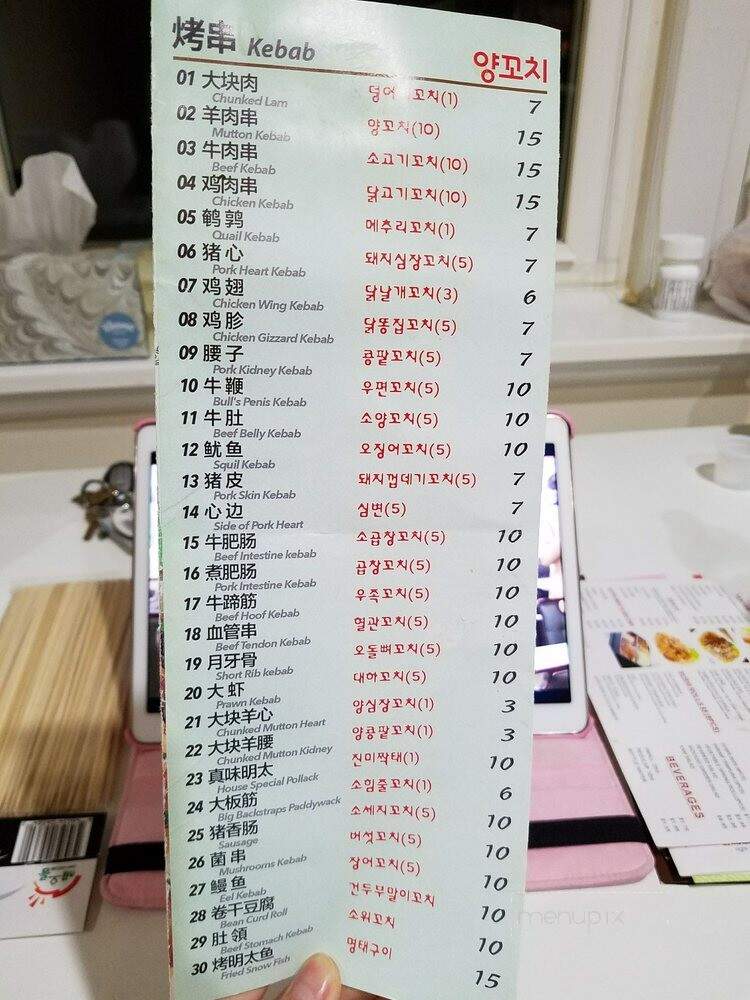 烤串 Kebab 양꼬치
01 大块肉 덩어 꼬치(1) 7
Chunked Lam
02 羊肉串 양꼬치(10) 15
Mutton Kebab
03 牛肉串 소고기꼬치(10) 15
Beef Kebab
04 鸡肉串 닭고기꼬치(10) 15
Chicken Kebab
05 鹌鹑 메추리꼬치(1) 7
Quail Kebab
06 猪心 돼지심장꼬치(5) 7
Pork Heart Kebab
07 鸡翅 닭날개꼬치(3) 6
Chicken Wing Kebab
08 鸡胗 닭똥집꼬치(5) 7
Chicken Gizzard Kebab
09 腰子 콩팥꼬치(5) 7
Pork Kidney Kebab
10 牛鞭 우편꼬치(5) 10
Bull's Penis Kebab
11 牛肚 소양꼬치(5) 10
Beef Belly Kebab
12 鱿鱼 오징어꼬치(5) 10
Squil Kebab
13 猪皮 돼지껍데기꼬치(5) 7
Pork Skin Kebab
14 心边 심변(5) 7
Side of Pork Heart
15 牛肥肠 소곱창꼬치(5) 10
Beef Intestine kebab
16 煮肥肠 곱창꼬치(5) 10
Pork Intestine Kebab
17 牛蹄筋 우족꼬치(5) 10
Beef Hoof Kebab
18 血管串 혈관꼬치(5) 10
Beef Tendon Kebab
19 月牙骨 오돌뼈꼬치(5) 10
Short Rib kebab
20 大虾 대하꼬치(5) 10
Prawn Kebab
21 大块羊心 양심장꼬치(1) 3
Chunked Mutton Heart
22 大块羊腰 양콩팥꼬치(1) 3
Chunked Mutton Kidney
23 真味明太 진미짝태(1) 10
House Special Pollack
24 大板筋 소힘줄꼬치(1) 6
Big Backstraps Paddywack
25 猪香肠 소세지꼬치(5) 10
Sausage
26 菌串 버섯꼬치(5) 10
Mushrooms Kebab
27 鳗鱼 장어꼬치(5) 10
Eel Kebab
28 卷干豆腐 건두부말이꼬치 10
Bean Curd Roll
29 肚領 소위꼬치 10
Beef Stomach Kebab
30 烤明太鱼 명태구이 15
Fried Snow Fish
BEVERAGES
menupix